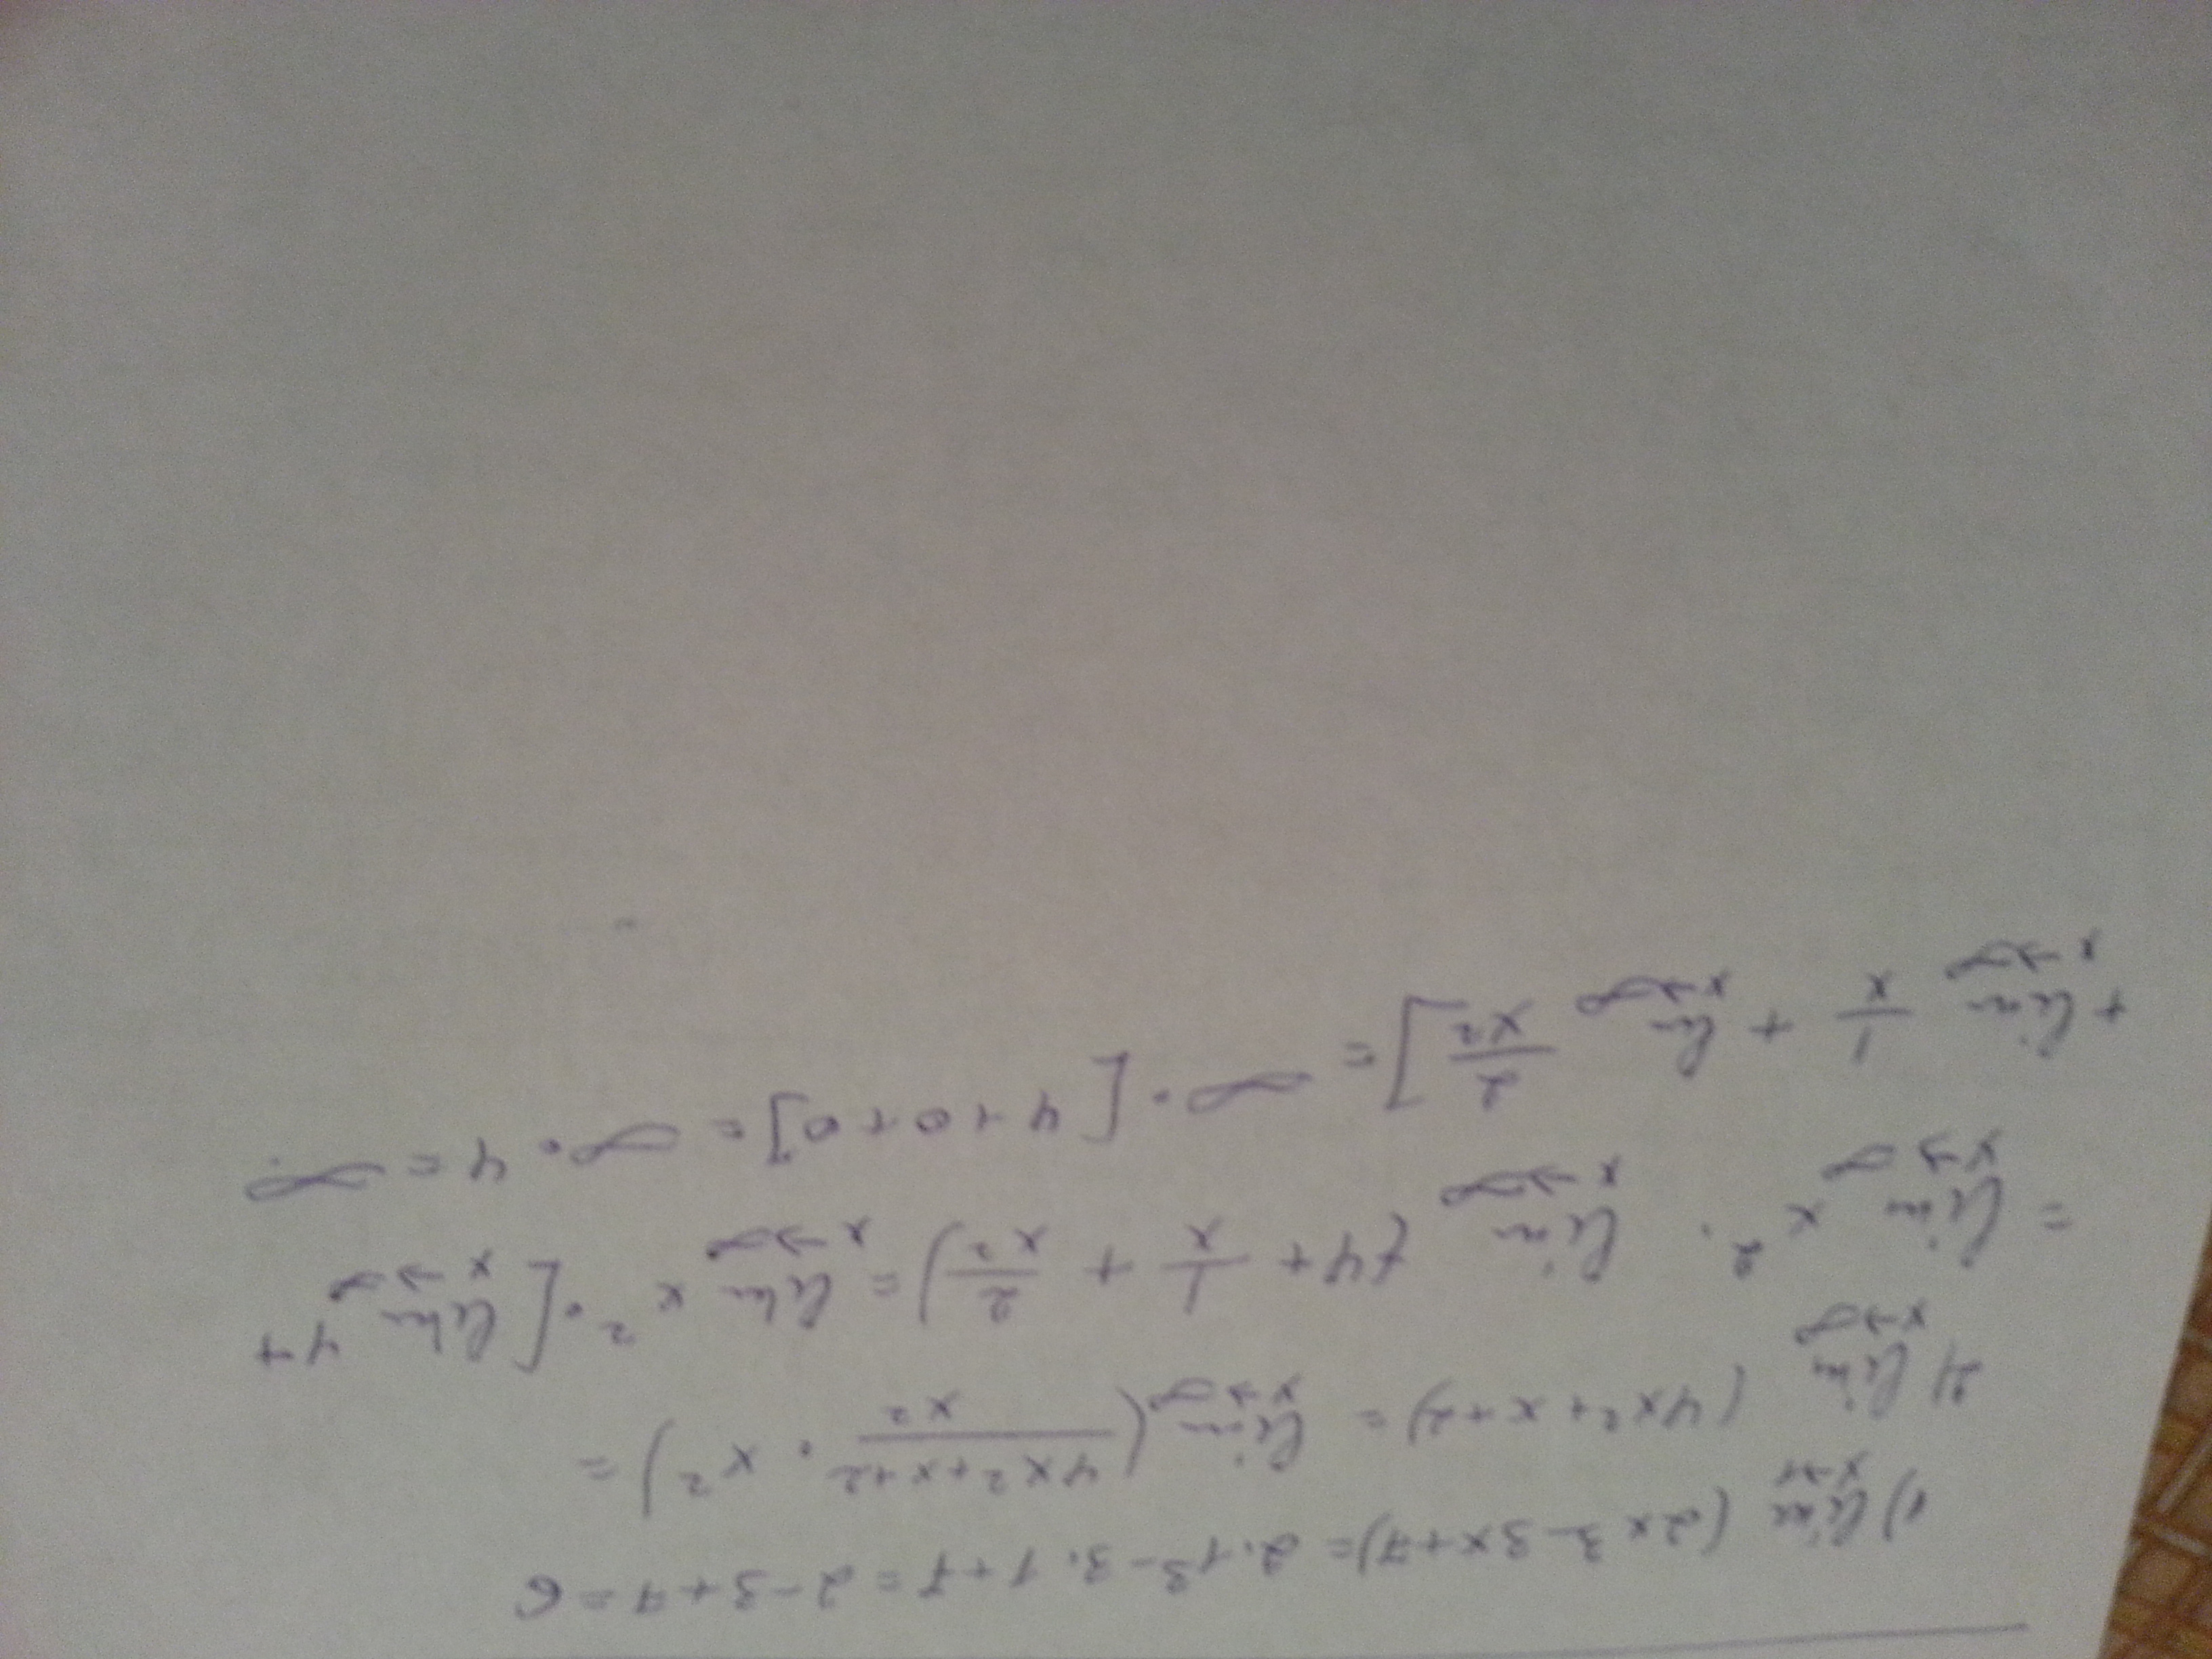 1) lim x→1 (2x³ - 3x + 7) = 2·1³ - 3·1 + 7 = 2 - 3 + 7 = 6
2) lim x→∞ (4x² + x + 2) = lim x→∞ ((4x² + x + 2)/x² · x²) =
= lim x→∞ x² · lim x→∞ (4 + 1/x + 2/x²) = lim x→∞ x² · [lim x→∞ 4 +
+ lim x→∞ 1/x + lim x→∞ 2/x²] = ∞ · [4 + 0 + 0] = ∞ · 4 = ∞